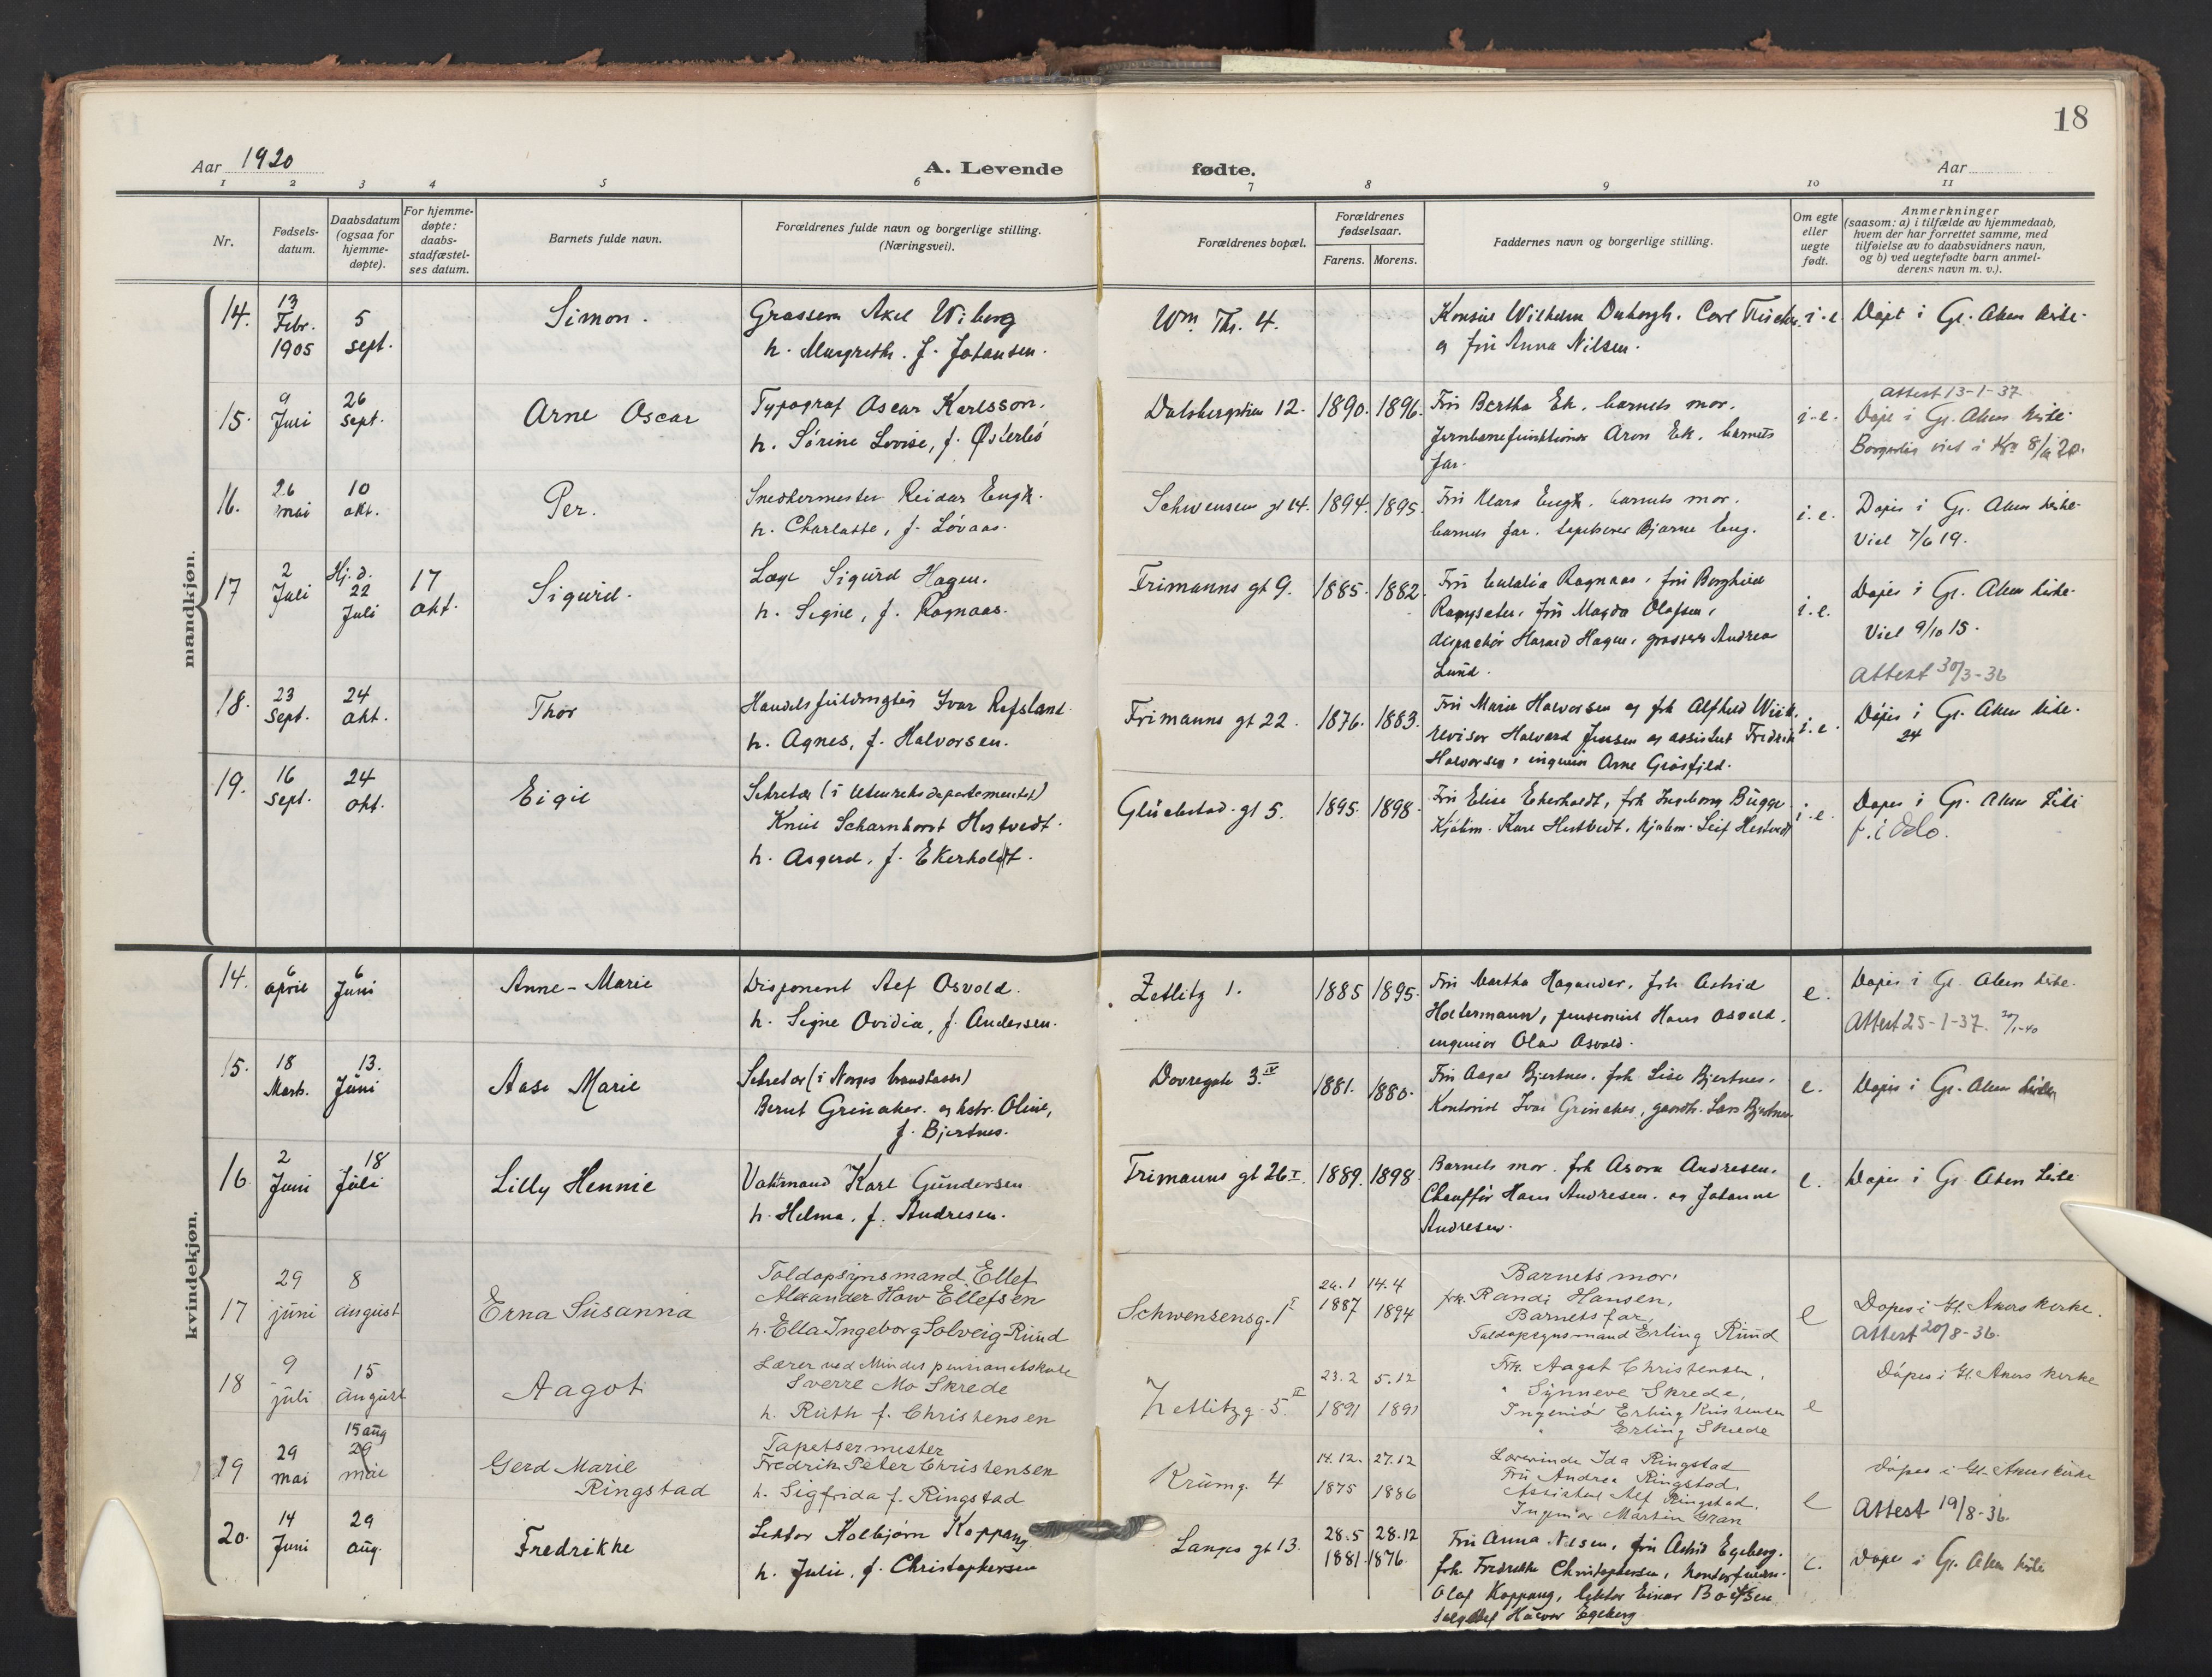 18
Aar 1920
A. Levende fødte.
Aar
1 2 3 4 5 6 7 8 9 10 11
Nr.
Fødsels-
datum.
Daabsdatum
(ogsaa for
hjemme-
døpte).
For hjemme-
døpte:
daabs-
stadfæstel-
ses datum.
Barnets fulde navn.
Forældrenes fulde navn og borgerlige stilling.
(Næringsvei).
Forældrenes bopæl.
Forældrenes
fødselsaar.
Farens. Morens.
Faddernes navn og borgerlige stilling.
Om egte
eller
uegte
født.
Anmerkninger
(saasom: a) i tilfælde av hjemmedaab,
hvem der har forrettet samme, med
tilføielse av to daabsvidners navn,
og b) ved uegtefødte barn anmel-
derens navn m. v.).
mandkjøn.
14.
13
Febr.
1905
5
sept.
Simon.
Grosserer Axel Wiborg
h. Margrethe. f. Johansen.
Wm. Th. 4.
Konsul Wilhelm Duborgh. Carl
og fru Anna Nilsen.
i.e.
Døpt i Gl. Akers kirke.
15.
9
Juli
26
sept.
Arne Oscar
Typograf Oscar Karlsson.
h. Sørine Lovise, f. Østerlis
Dalsbergstien 12.
1890. 1896.
Fru Bertha Ek. barnets mor.
Jernbanefunktionær Aron Ek. barnets
far.
i.e.
Attest 13-1-37
Døpt i Gl. Akers kirke
Borgerlig viet i Kra 20.
16.
26
mai
10
okt.
Per.
Snedkermester Reidar Engh.
h. Charlotte, f. Løvaas.
Schwensens gt 14.
1894. 1895.
Fru Klara Engh. barnets mor.
barnets far. Bjarne Eng.
i.e.
Døpt i Gl. Akers kirke
Viet 7/6 19.
17
2
Juli
Hj. d.
22
Juli
17
okt.
Sigurd.
Læge Sigurd Hagen.
h. Signe, f. Ragnaas.
Frimanns gt 9.
1885. 1882.
Fru Eulalia Ragnaas, fru Borghild
fru Magda Olafsen,
dispachør Harald Hagen, grosserer Andreas
Lund.
i.e.
Døpt i Gl. Akers kirke
Viet 9/10 15.
Attest 30/3-36
18.
23
Sept.
24
okt.
Thor
Handelsfuldmægtig Ivar Refsland.
h. Agnes, f. Halvorsen.
Frimanns gt 22.
1876. 1883.
Fru Marie Halvorsen og frk Alfhild Wiik.
revisor Halvard Jensen og assistent Fredrik
Halvorsen, ingeniør Arne Grøsfjeld.
i.e.
Døpt i Gl. Akers kirke.
24
19.
16
Sept.
24
okt.
Eigil
Sekretær (i Utenriksdepartementet)
Knut Scharnhorst Hestvedt.
h. Asgerd, f. Ekerholdt.
Glückstad. gt 5.
1895. 1898.
Fru Elise Ekerholdt, frk Ingeborg Bugge
Kjøbm. Kare Hestvedt, kjøbm. Leif Hestvedt
i.e.
Døpt i Gl. Akers kirke
f. i Oslo.
kvindekjøn.
14.
6
april
6
Juni
Anne-Marie
Disponent Alf Osvold.
h. Signe Ovidia, f. Andersen.
Zetlitz 1.
1885 1895.
Fru Martha Hagander, frk Astrid
Holtermann, pensionist Hans Osvold.
ingeniør Olav Osvold.
e.
Døpt i Gl. Akers kirke.
Attest 25-1-37.
15.
18
Marts.
13.
Juni
Aase Marie
Sekretær (i Norges brandkasse)
Bernt Grinaker. og hstr. Oline,
f. Bjertnes.
Dovregate 3.IV
1881. 1880.
Fru Aagot Bjertnes, frk Lise Bjertnes.
Kontorist Ivar Grinaker, gaardbr. Lars Bjertnes
e.
Døpt i Gl. Akers kirke
16
2
Juni
18
Juli
Lilly Hennie
Vaktmand Karl Gundersen
h. Helma, f. Andresen.
Frimanns gt 26 I.
1889. 1898
Barnets mor. frk Asora Andresen.
Chauffør Hans Andresen. og Johanne
Andresen.
e.
Døpt i Gl. Akers kirke
17
29
juni
8
august
Erna Susanna
Toldopsynsmand Ellef
Alexander How Ellefsen
h. Ella Ingeborg Solveig Rund
Schwensensg. 1 I
26.1 14.4
1887 1894
Barnets mor,
frk. Randi Hansen,
Barnets far,
Toldopsynsmand Erling Rund
e
Døpes i Gl. Akers kirke.
Attest 20/8-36.
18
9
juli
15
august
Aagot
Lærer ved Mindes pensionatskole
Sverre Mo Skrede
h. Ruth f. Christensen
Zetlitzg. 5 II
23.2 5.12
1891 1891
Frk. Aagot Christensen,
" Synneve Skrede,
Ingeniør Erling Kristensen
" Erling Skrede
e
Døpes i Gl. Akers kirke
19
29
mai
15 aug
29
mai
Gerd Marie
Ringstad
Tapetsermester
Fredrik Peter Christensen
h. Sigfrida f. Ringstad
Krumg. 4
14.12. 27.12
1875 1886
Lærerinde Ida Ringstad
Fru Andrea Ringstad,
Assistent Alf Ringstad,
Ingeniør Martin Gran
e
Døpes i Gl. Akers kirke
Attest 19/8-36.
20.
14
Juni
29
aug.
Fredrikke
Lektor Kolbjørn Koppang
h. Julie, f. Christophersen
Langes gt 13.
28.5 28.12
1881. 1876.
Fru Anna Nilsen, fru Astrid Egeberg.
frk. Fredrikke Christophersen,
Olaf Koppang, lektor Einar Boitsen
Halvor Egeberg
e.
Døpt i Gl. Akers kirke